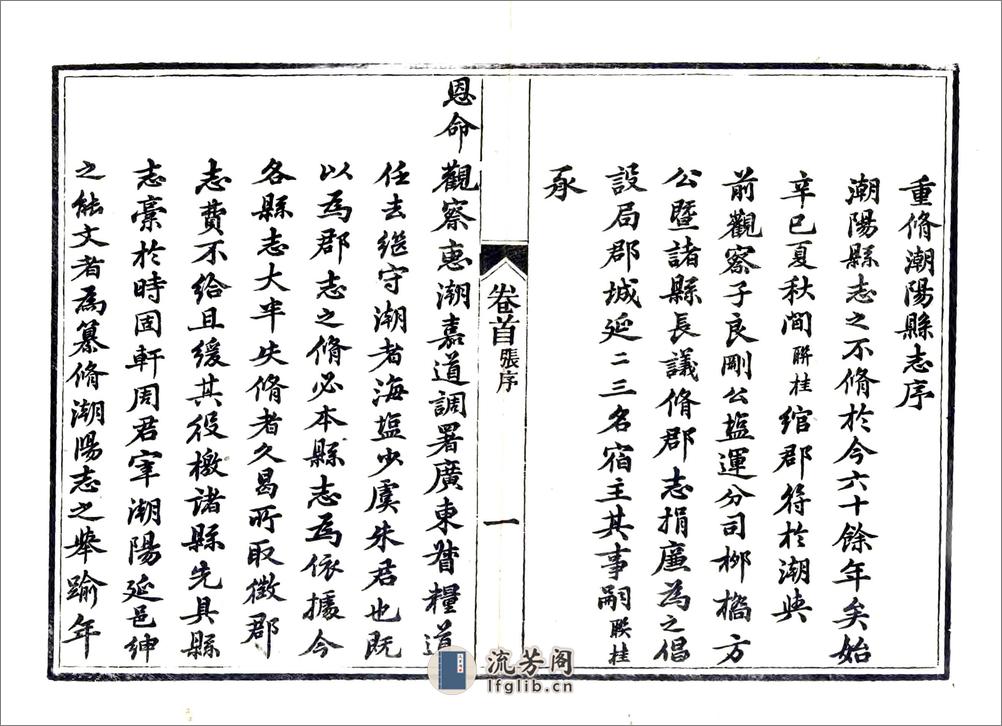 重脩潮陽縣志序
潮陽縣志之不脩於今六十餘年矣始
辛巳夏秋間聯桂綰郡符於潮與
前觀察子良剛公鹽運分司柳橋方
公暨諸縣長議脩郡志捐廉為之倡
設局郡城延二三名宿主其事嗣聯桂
承
卷首 張序 一
恩命觀察惠潮嘉道調署廣東督糧道
任去繼守潮者海盐少虞朱君也既
以為郡志之脩必本縣志為依據今
各縣志大半失脩者久曷所取徵郡
志費不給且緩其役檄諸縣先具縣
志稾於時固軒周君宰潮陽延邑紳
之能文者為纂脩潮陽志之舉踰年
流芳阁
lfglib.cn